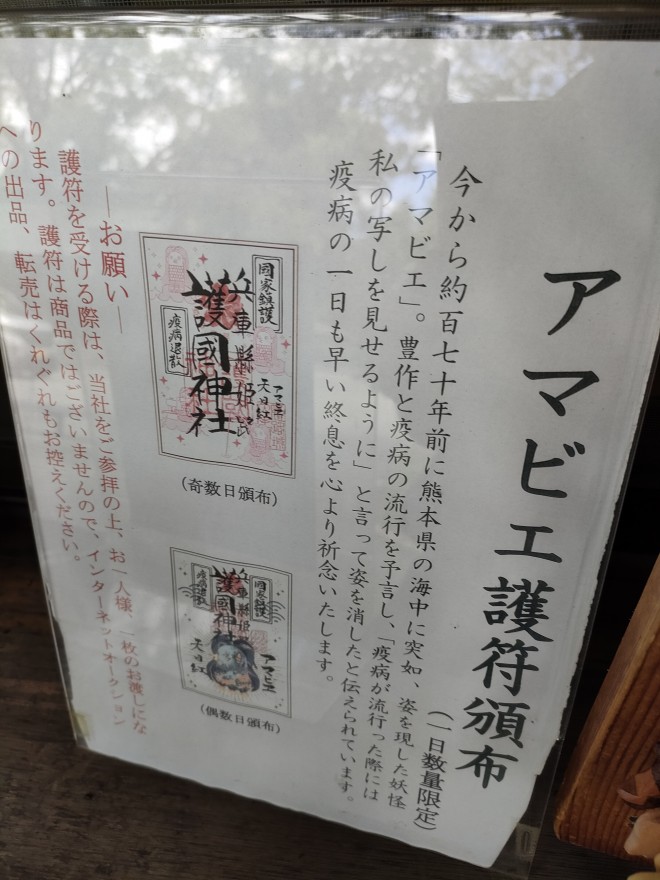 アマビエ護符頒布
(一日数量限定)
今から約百七十年前に熊本県の海中に突如、姿を現した妖怪
「アマビエ」。豊作と疫病の流行を予言し、「疫病が流行った際には
私の写しを見せるように」と言って姿を消したと伝えられています。
疫病の一日も早い終息を心より祈念いたします。
國家鎮護
兵庫縣姫路
護國神社
疫病退散
アマビエ
天日紅
(奇数日頒布)
國家鎮護
兵庫縣姫路
護國神社
疫病退散
アマビエ
天日紅
(偶数日頒布)
―お願い―
護符を受ける際は、当社をご参拝の上、お一人様、一枚のお渡しにな
ります。護符は商品ではございませんので、インターネットオークション
への出品、転売はくれぐれもお控えください。